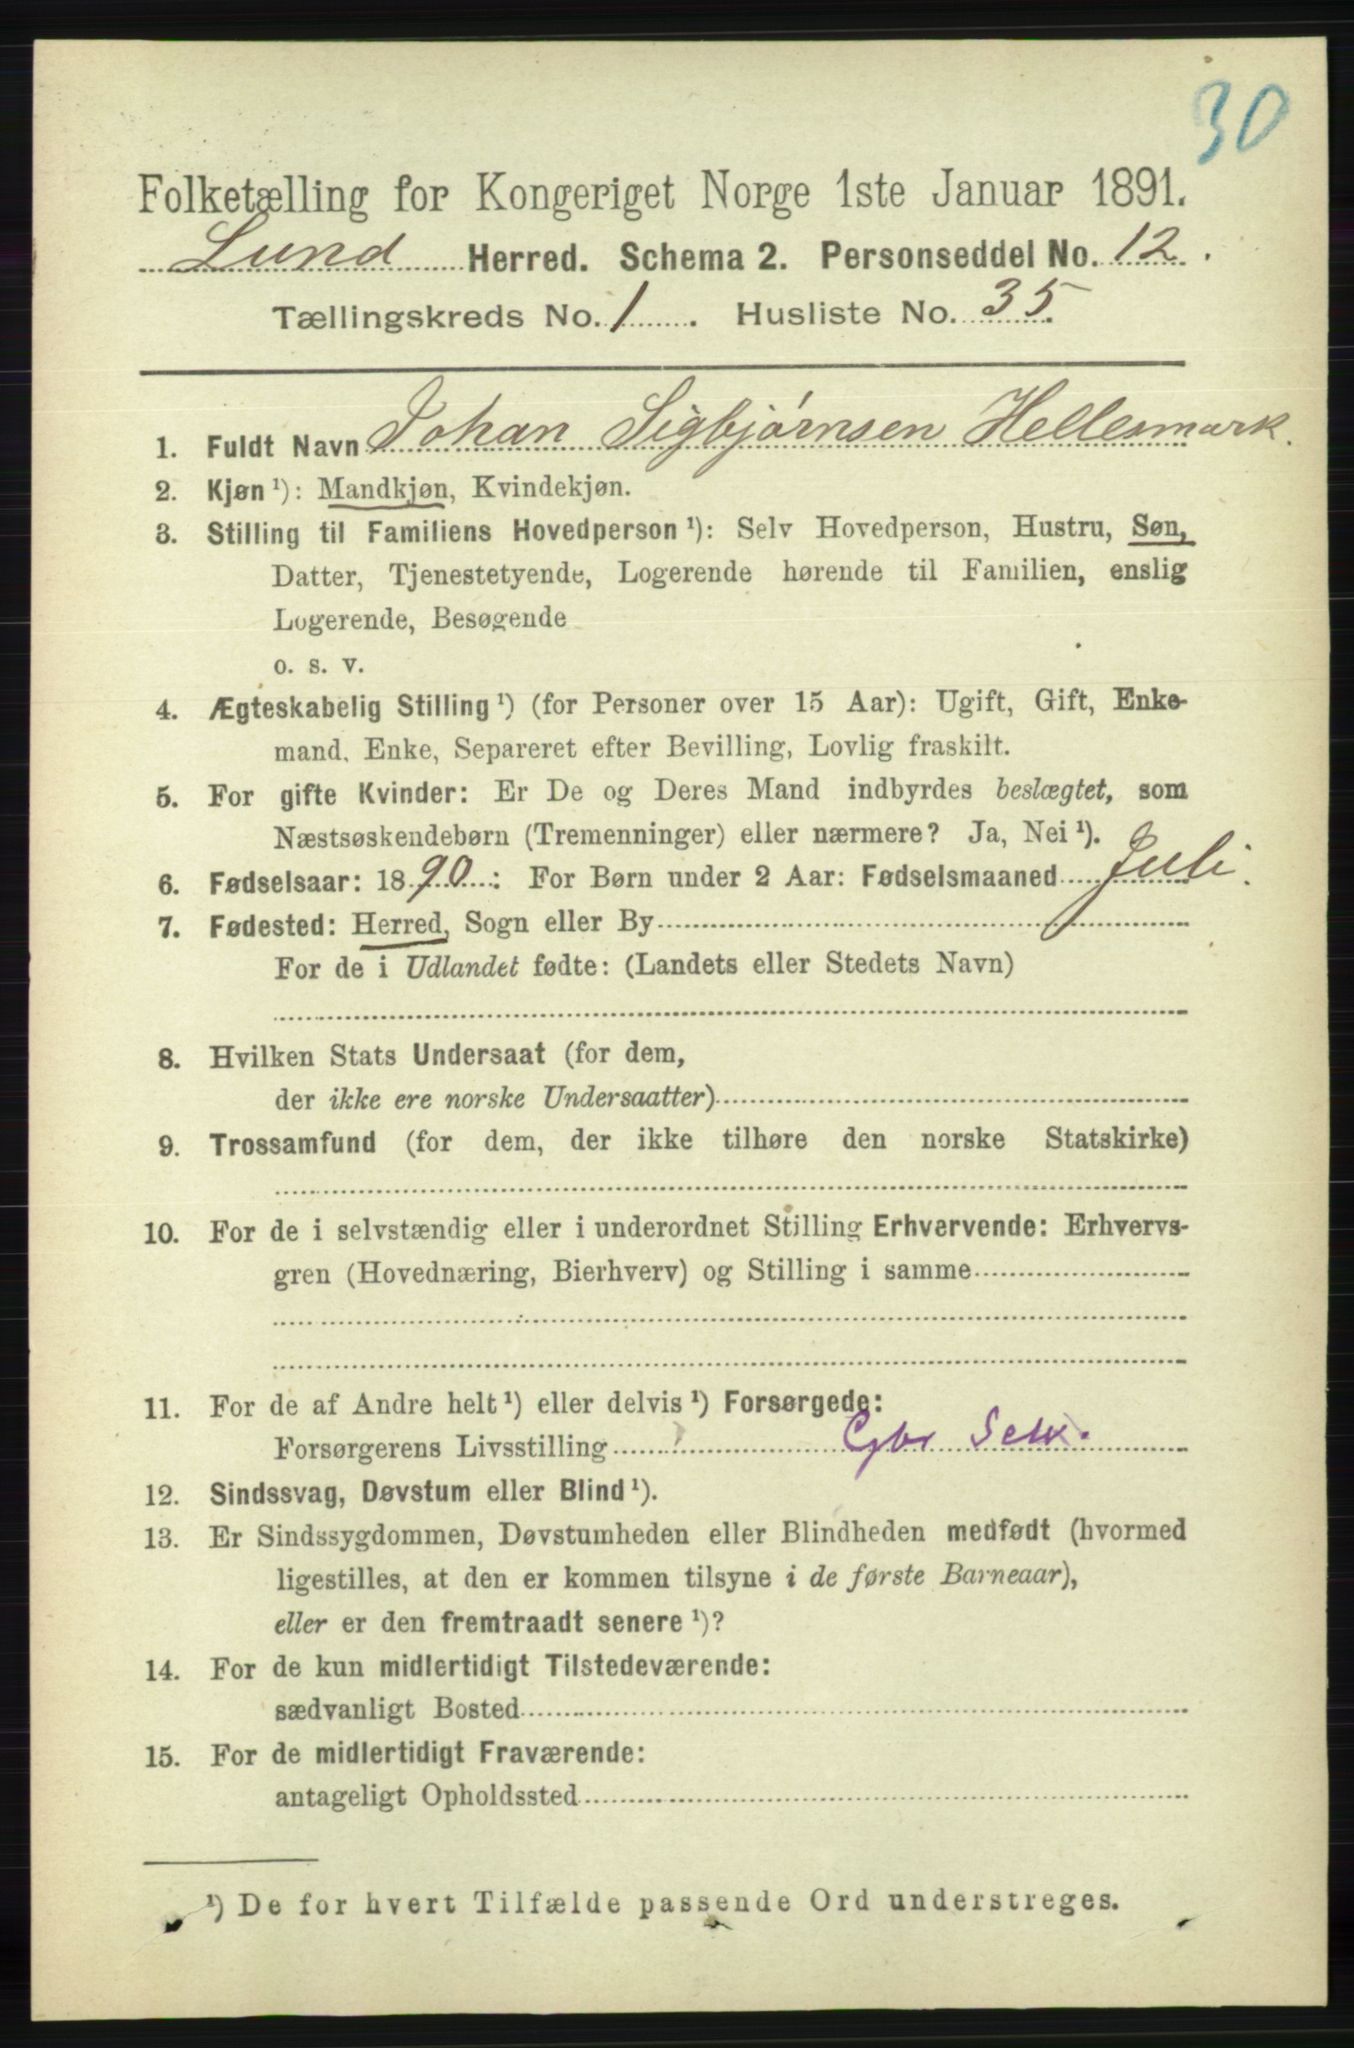 30
Folketælling for Kongeriget Norge 1ste Januar 1891.
Lund Herred. Schema 2. Personseddel No. 12.
Tællingskreds No. 1. Husliste No. 35.
1. Fuldt Navn Johan Sigbjørnsen Hellesmark.
2. Kjøn ¹): Mandkjøn, Kvindekjøn.
3. Stilling til Familiens Hovedperson ¹): Selv Hovedperson, Hustru, Søn,
Datter, Tjenestetyende, Logerende hørende til Familien, enslig
Logerende, Besøgende
o. s. v.
4. Ægteskabelig Stilling ¹) (for Personer over 15 Aar): Ugift, Gift, Enke-
mand, Enke, Separeret efter Bevilling, Lovlig fraskilt.
5. For gifte Kvinder: Er De og Deres Mand indbyrdes beslægtet, som
Næstsøskendebørn (Tremenninger) eller nærmere? Ja, Nei ¹).
6. Fødselsaar: 1890: For Børn under 2 Aar: Fødselsmaaned Juli.
7. Fødested: Herred, Sogn eller By
For de i Udlandet fødte: (Landets eller Stedets Navn)
8. Hvilken Stats Undersaat (for dem,
der ikke ere norske Undersaatter)
9. Trossamfund (for dem, der ikke tilhøre den norske Statskirke)
10. For de i selvstændig eller i underordnet Stilling Erhvervende: Erhvervs-
gren (Hovednæring, Bierhverv) og Stilling i samme
11. For de af Andre helt ¹) eller delvis ¹) Forsørgede:
Forsørgerens Livsstilling Gbr Selv.
12. Sindssvag, Døvstum eller Blind ¹).
13. Er Sindssygdommen, Døvstumheden eller Blindheden medfødt (hvormed
ligestilles, at den er kommen tilsyne i de første Barneaar),
eller er den fremtraadt senere ¹)?
14. For de kun midlertidigt Tilstedeværende:
sædvanligt Bosted
15. For de midlertidigt Fraværende:
antageligt Opholdssted
¹) De for hvert Tilfælde passende Ord understreges.